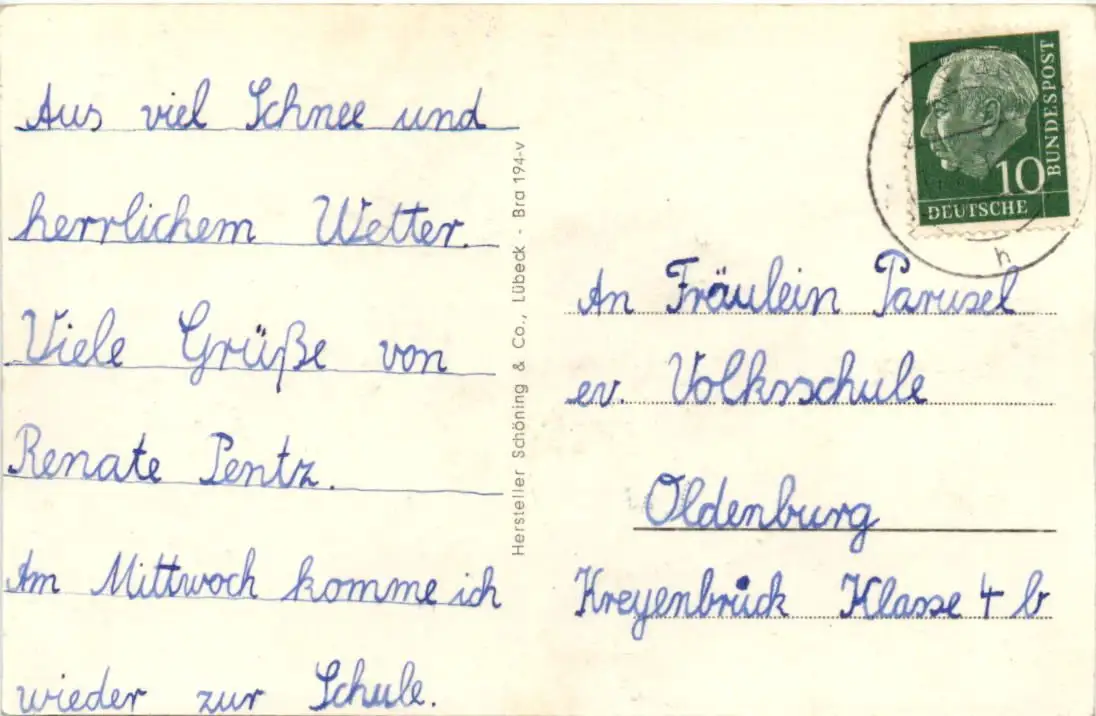 Aus viel Schnee und
herrlichem Wetter.
Viele Grüße von
Renate Pentz.
Am Mittwoch komme ich
wieder zur Schule.
Hersteller Schöning & Co., Lübeck - Bra 194-v
DEUTSCHE
BUNDESPOST
10
h
An Fräulein Parusel
ev. Volksschule
Oldenburg
Kreyenbrück Klasse 4 b